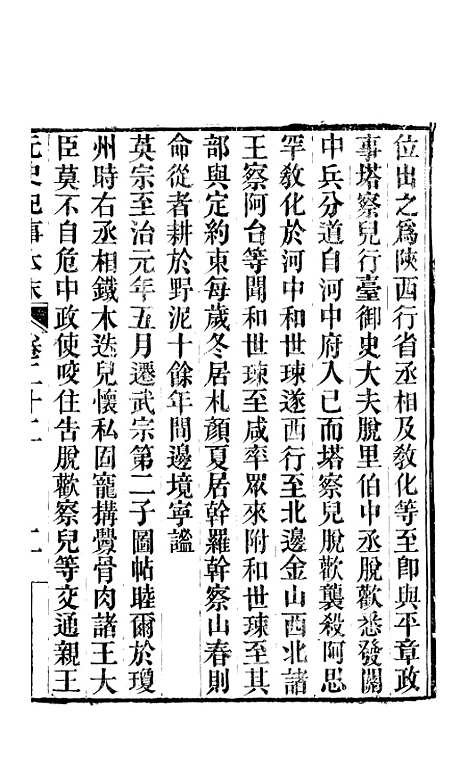 位出之爲陝西行省丞相及敎化等至卽與平章政
事塔察兒行臺御史大夫脫里伯中丞脫歡悉發關
中兵分道自河中府入已而塔察兒脫歡襲殺阿思
罕敎化於河中和世㻋遂西行至北邊金山西北諸
王察阿台等聞和世㻋至咸率眾來附和世㻋至其
部與定約束每歲冬居札顏夏居幹羅幹察山春則
命從者耕於野泥十餘年間邊境寧謐
英宗至治元年五月遷武宗第二子圖帖睦爾於瓊
州時右丞相鐵木迭兒懷私固寵搆釁骨肉諸王大
臣莫不自危中政使咬住告脫歡察兒等交通親王
元史紀事本末 卷二十二 二